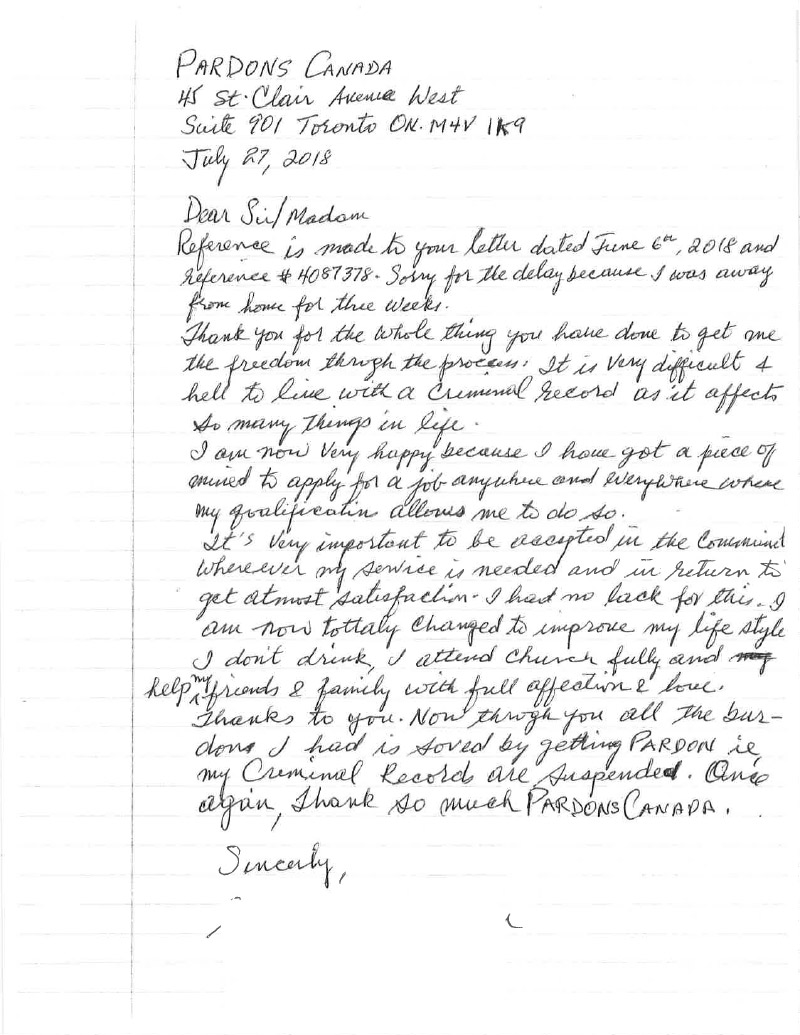 PARDONS CANADA
45 St. Clair Avenue West
Suite 901 Toronto ON. M4V 1K9
July 27, 2018
Dear Sir/Madam
Reference is made to your letter dated June 6th, 2018 and
reference # 4087378. Sorry for the delay because I was away
from home for three weeks.
Thank you for the whole thing you have done to get me
the freedom through the process. It is very difficult &
hell to live with a criminal record as it affects
so many things in life.
I am now very happy because I have got a piece of
mined to apply for a job anywhere and everywhere where
my qoalificatin allows me to do so.
It's very important to be accepted in the Communit
wherever my service is needed and in return to
get atmost satisfaction. I had no lack for this. I
am now tottaly changed to improve my life style
I don't drink, I attend church fully and
help my friends & family with full affection & love.
Thanks to you. Now throgh you all the bur-
dons I had is soved by getting PARDON ie,
my Criminal Records are suspended. Once
again, Thank so much PARDONS CANADA.
Sincerly,